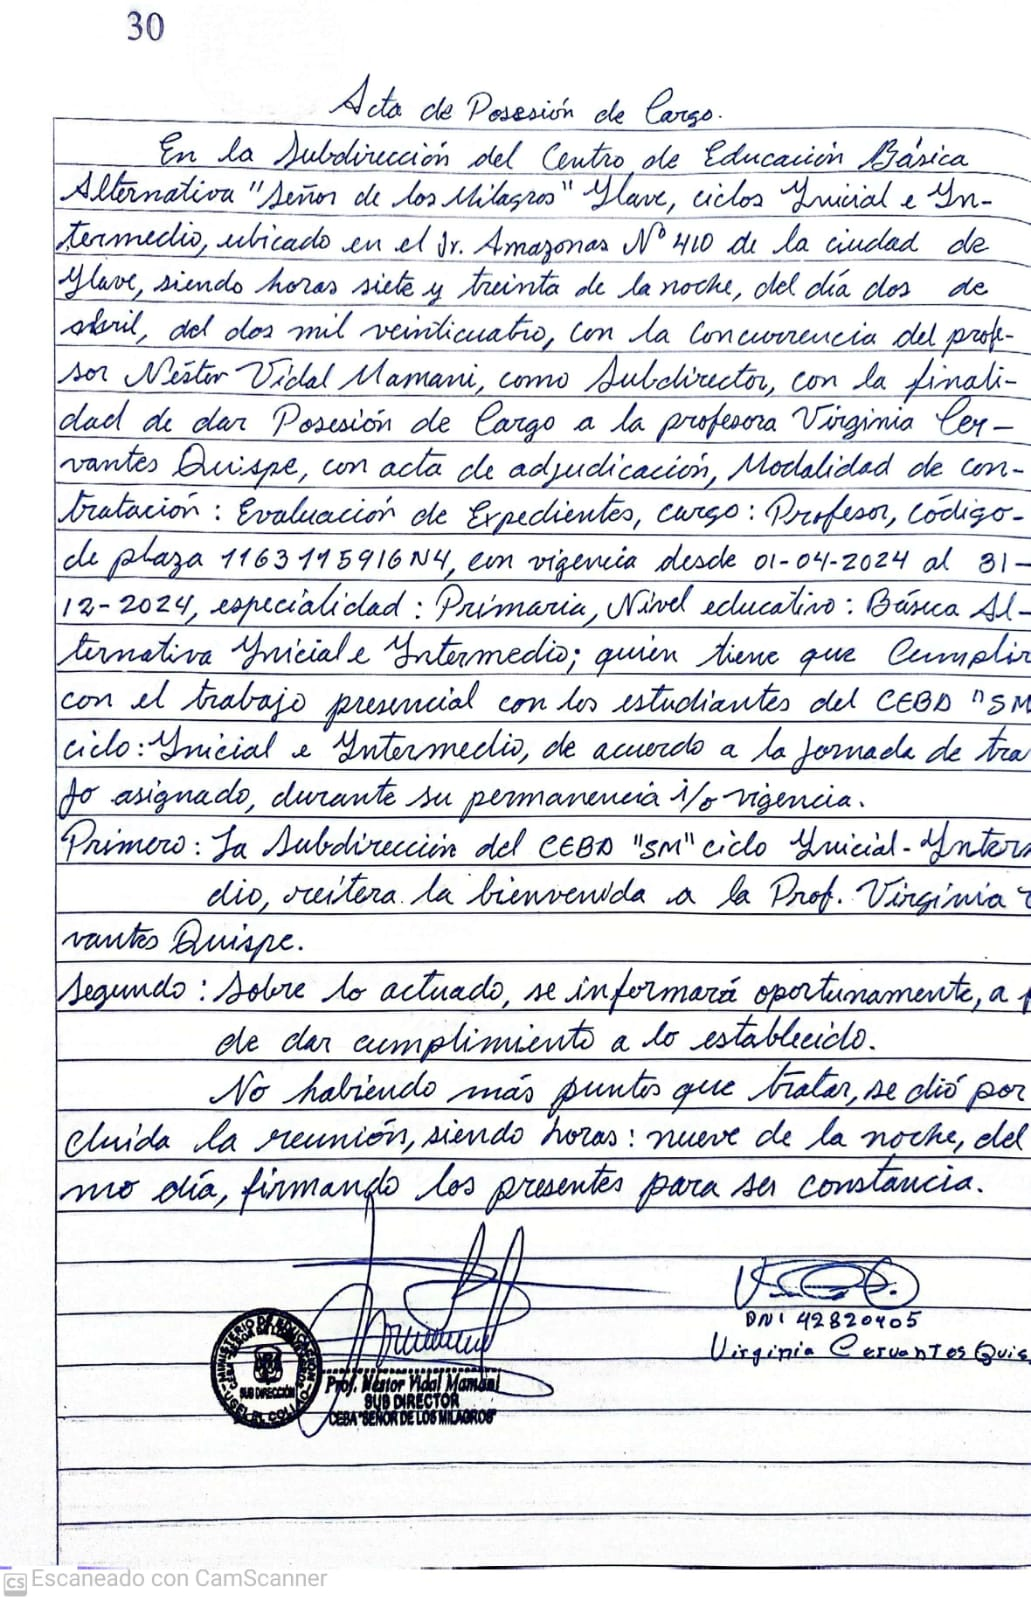 30
Acta de Posesión de Cargo.
En la Subdirección del Centro de Educación Básica
Alternativa "Señor de los Milagros" Ylave, ciclos Ynicial e Yn-
termedio, ubicado en el Jr. Amazonas N° 410 de la ciudad de
Ylave, siendo horas siete y treinta de la noche, del día dos de
abril, del dos mil veinticuatro, con la concurrencia del profe-
sor Néstor Vidal Mamani, como Subdirector, con la finali-
dad de dar Posesión de Cargo a la profesora Virginia Cer-
vantes Quispe, con acta de adjudicación, Modalidad de con-
tratación: Evaluación de Expedientes, cargo: Profesor, código-
de plaza 1163115916N4, con vigencia desde 01-04-2024 al 31-
12-2024, especialidad: Primaria, Nivel educativo: Básica Al-
ternativa Ynicial e Yntermedio; quien tiene que Cumplir
con el trabajo presencial con los estudiantes del CEBA "SM
ciclo: Ynicial e Yntermedio, de acuerdo a la jornada de tra
jo asignado, durante su permanencia i/o vigencia.
Primero: La Subdirección del CEBA "SM" ciclo Ynicial-Ynter
dio, reitera la bienvenida a la Prof. Virginia
vantes Quispe.
Segundo: Sobre lo actuado, se informará oportunamente, a
de dar cumplimiento a lo establecido.
No habiendo más puntos que tratar, se dió por
cluída la reunión, siendo horas: nueve de la noche, del
mo día, firmando los presentes para ser constancia.
DNI 42820405
Virginia Cervantes Quis
MINISTERIO DE EDUCACIÓN
CEBA "SEÑOR DE LOS MILAGROS"
SUB DIRECCIÓN
UGEL EL COLLAO
Prof. Néstor Vidal Mamani
SUB DIRECTOR
CEBA "SEÑOR DE LOS MILAGROS"
CS Escaneado con CamScanner